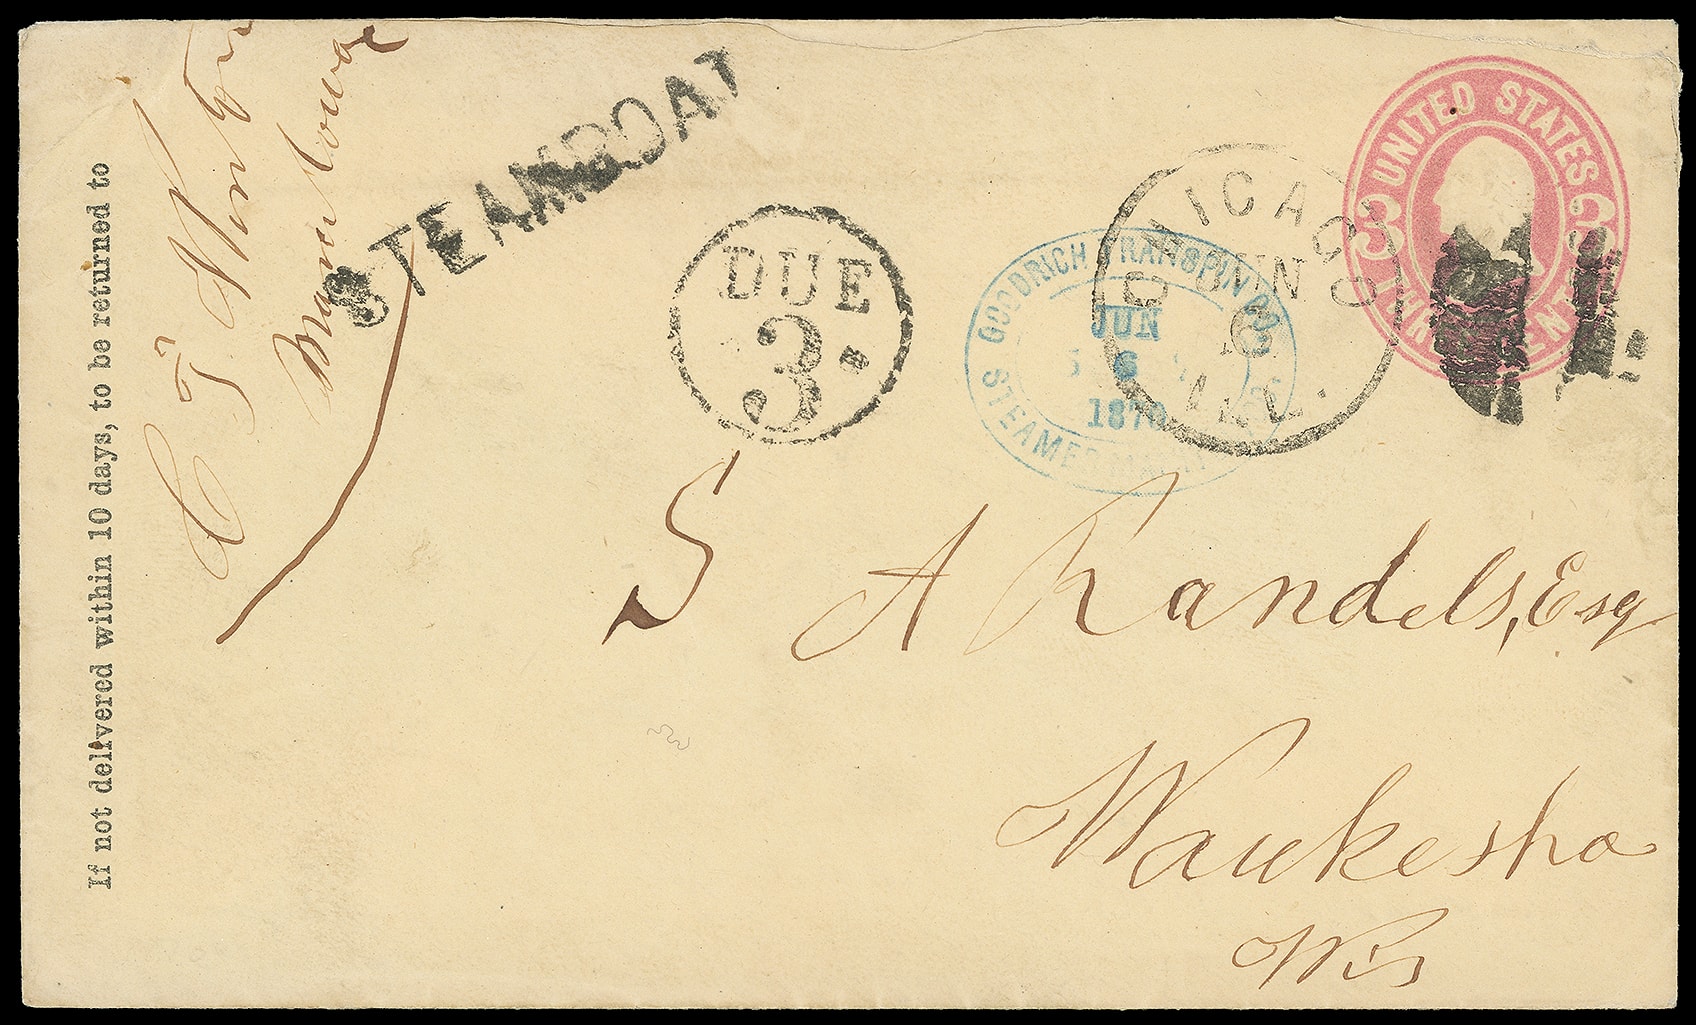 If not delivered within 10 days, to be returned to
C T
Manitowoc
STEAMBOAT
DUE
3
GOODRICH TRANSP'N CO.
JUN
6
1870
STEAMER
CHICAGO
JUN
ILL.
UNITED STATES
3 3
THREE CENTS
S A Randels, Esq
Waukesha
Wis